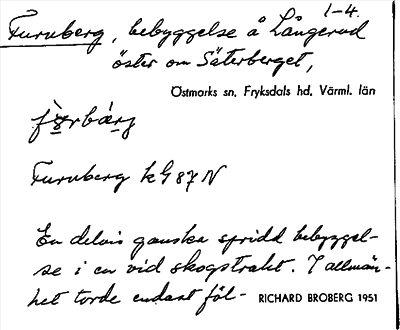 1-4.
Furuberg, bebyggelse å Långerud
öster om Säterberget,
Östmarks sn, Fryksdals hd, Värml. län
Furuberg kG 87 N
En delvis ganska spridd bebyggel-
se i en vid skogstrakt. I allmän-
het torde endast föl-
RICHARD BROBERG 1951